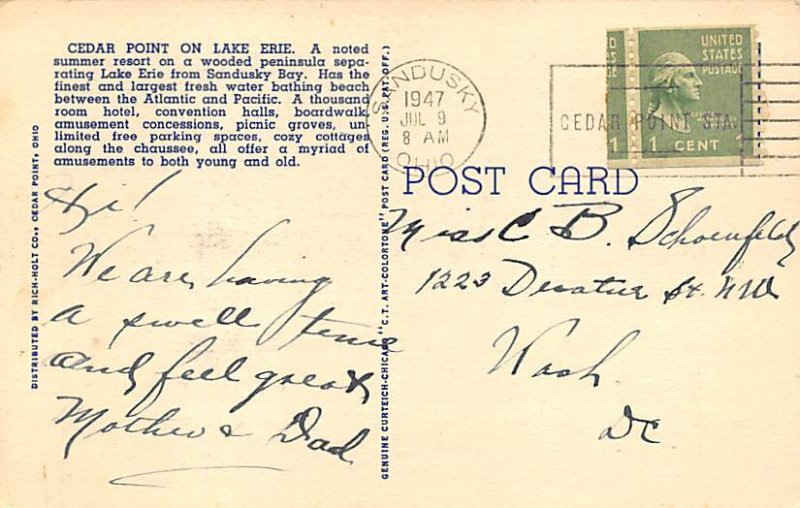 CEDAR POINT ON LAKE ERIE. A noted
summer resort on a wooded peninsula sepa-
rating Lake Erie from Sandusky Bay. Has the
finest and largest fresh water bathing beach
between the Atlantic and Pacific. A thousand
room hotel, convention halls, boardwalk,
amusement concessions, picnic groves, un-
limited free parking spaces, cozy cottages
along the chaussee, all offer a myriad of
amusements to both young and old.
DISTRIBUTED BY RICH-HOLT CO., CEDAR POINT, OHIO
Hi!
We are having
a swell time
and feel great
Mother & Dad
GENUINE CURTEICH-CHICAGO "C.T. ART-COLORTONE" POST CARD (REG. U.S. PAT. OFF.)
SANDUSKY
1947
JUL 9
8 AM
OHIO
CEDAR POINT STA.
UNITED
STATES
POSTAGE
1 1 CENT
POST CARD
Miss C B. Schoenfeld
1223 Decatur St. NW
Wash
DC